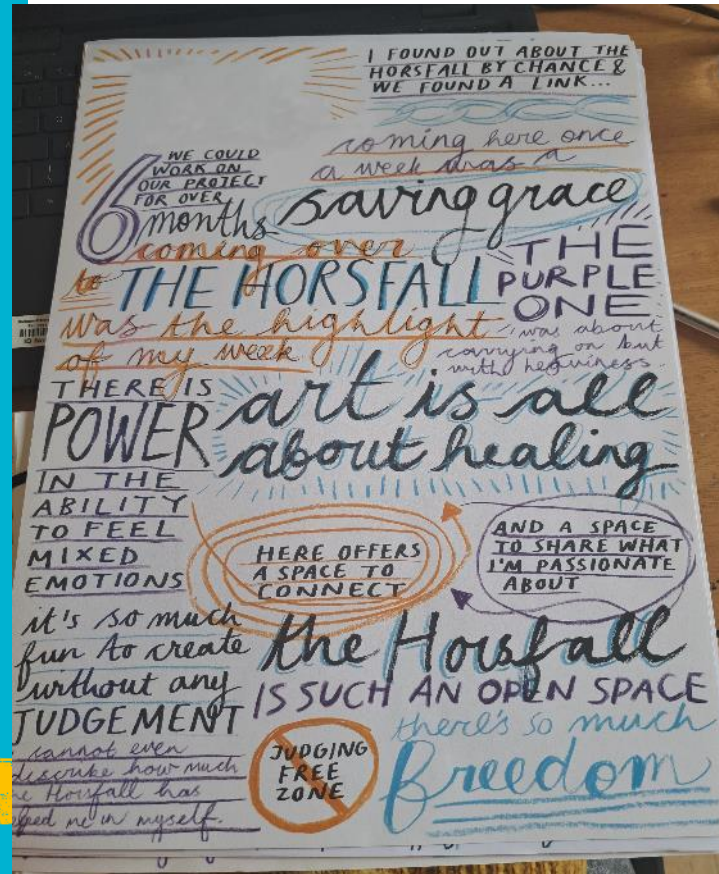 I FOUND OUT ABOUT THE
HORSFALL BY CHANCE &
WE FOUND A LINK...
coming here once
a week was a
saving grace
6
WE COULD
WORK ON
OUR PROJECT
FOR OVER
months
coming over
to THE HORSFALL
was the highlight
of my week
THE
PURPLE
ONE
was about
carrying on but
with heaviness.
THERE IS
POWER
IN THE
ABILITY
TO FEEL
MIXED
EMOTIONS
art is all
about healing
HERE OFFERS
A SPACE TO
CONNECT
AND A SPACE
TO SHARE WHAT
I'M PASSIONATE
ABOUT
it's so much
fun to create
without any
JUDGEMENT
the Horsfall
IS SUCH AN OPEN SPACE
there's so much
freedom
JUDGING
FREE
ZONE
cannot even
describe how much
Horsfall has
me in myself.